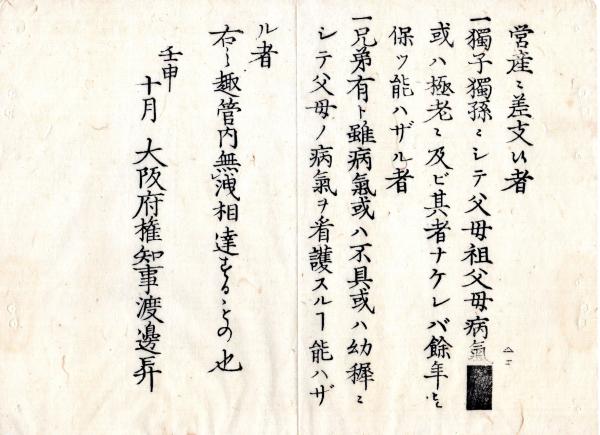 営産ニ差支候者
一獨子獨孫ニシテ父母祖父母病氣
或ハ極老ニ及ビ其者ナケレバ餘年ヲ
保ツ能ハザル者
一兄弟有ト雖病氣或ハ不具或ハ幼穉ニ
シテ父母ノ病氣ヲ看護スルヿ能ハザ
ル者
右之趣管内無洩相達するもの也
壬申
十月 大阪府権知事渡邊昇